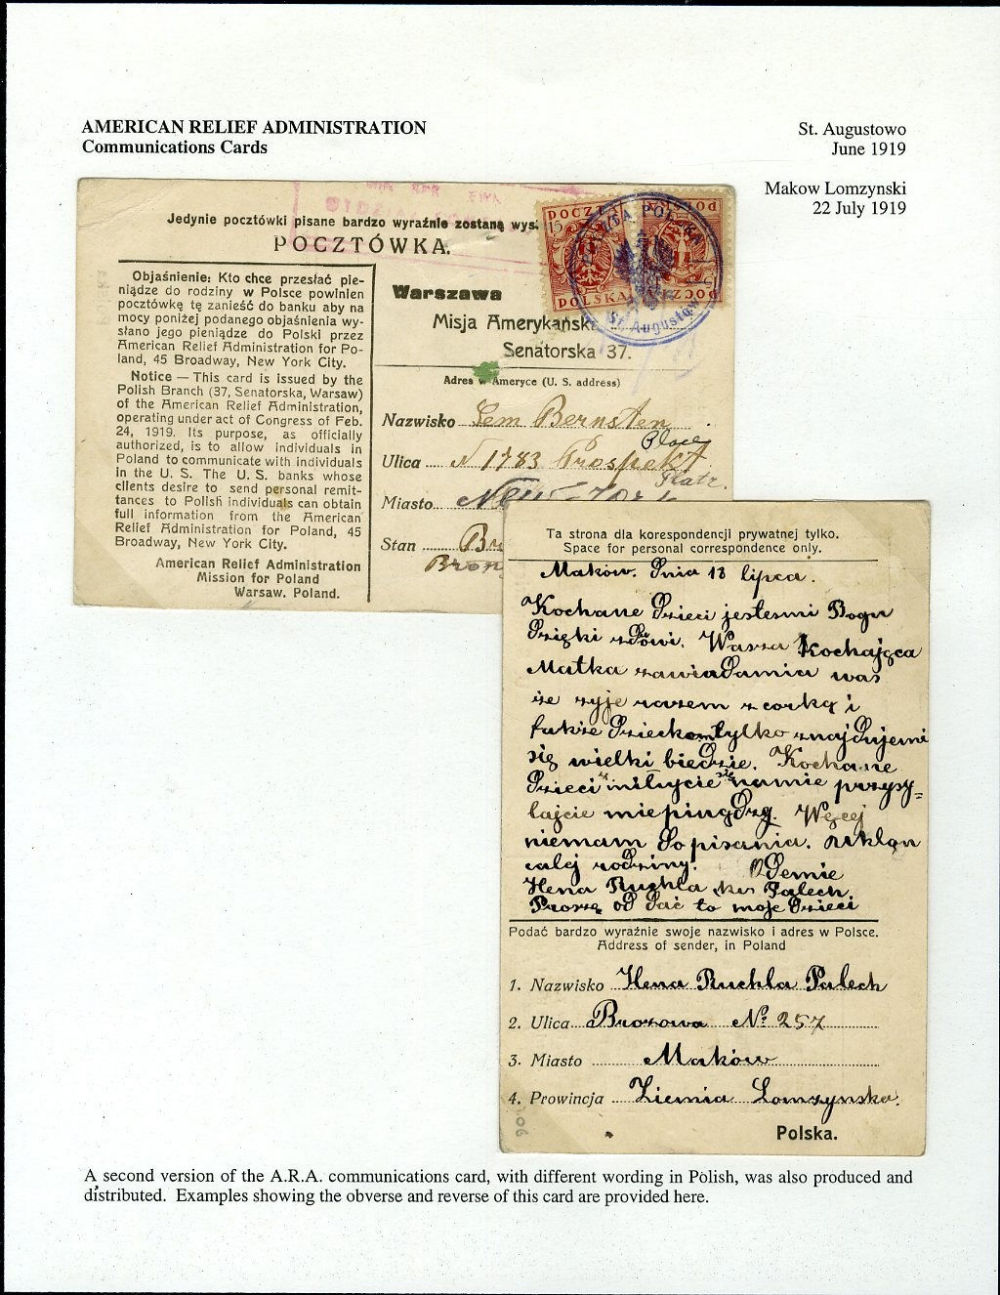 AMERICAN RELIEF ADMINISTRATION
Communications Cards
St. Augustowo
June 1919
Makow Lomzynski
22 July 1919
Jedynie pocztówki pisane bardzo wyraźnie zostaną wys.
POCZTÓWKA.
Objaśnienie: Kto chce przesłać pie-
niądze do rodziny w Polsce powinien
pocztówkę tę zanieść do banku aby na
mocy poniżej podanego objaśnienia wy-
słano jego pieniądze do Polski przez
American Relief Administration for Po-
land, 45 Broadway, New York City.
Notice — This card is issued by the
Polish Branch (37, Senatorska, Warsaw)
of the American Relief Administration,
operating under act of Congress of Feb.
24, 1919. Its purpose, as officially
authorized, is to allow individuals in
Poland to communicate with individuals
in the U. S. The U. S. banks whose
clients desire to send personal remit-
tances to Polish individuals can obtain
full information from the American
Relief Administration for Poland, 45
Broadway, New York City.
American Relief Administration
Mission for Poland
Warsaw. Poland.
POCZTA
15
POLSKA
POCZTA
POLSKA
St. Augustowo
Warszawa
Misja Amerykańsk
Senatorska 37.
Adres w Ameryce (U. S. address)
Nazwisko Sem Bernsten
Place
Ulica N 1783 Prospekt
Platz.
Miasto New-York
Stan Br
Bron
Ta strona dla korespondencji prywatnej tylko.
Space for personal correspondence only.
Maków. Dnia 18 lipca.
Kochane Dzieci jestesmi Bogu
Dzięki zdowi. Wasza kochająca
Matka zawiadamia was
że zyje razem z corką i
także tylko znajdujemi
się wielki biedzie. Kochane
Dzieci namie przysy-
lajcie mie pingdzy. Węcej
niemam do pisania. Uklon
calej rodziny. Odemie
Hena Ruchla Palech
Proszę od dać to moje Dzieci
Podać bardzo wyraźnie swoje nazwisko i adres w Polsce.
Address of sender, in Poland
1. Nazwisko Hena Ruchla Palech
2. Ulica Brozowa No 257
3. Miasto Maków
4. Prowincja Ziemia Lomzynska.
Polska.
A second version of the A.R.A. communications card, with different wording in Polish, was also produced and
distributed. Examples showing the obverse and reverse of this card are provided here.